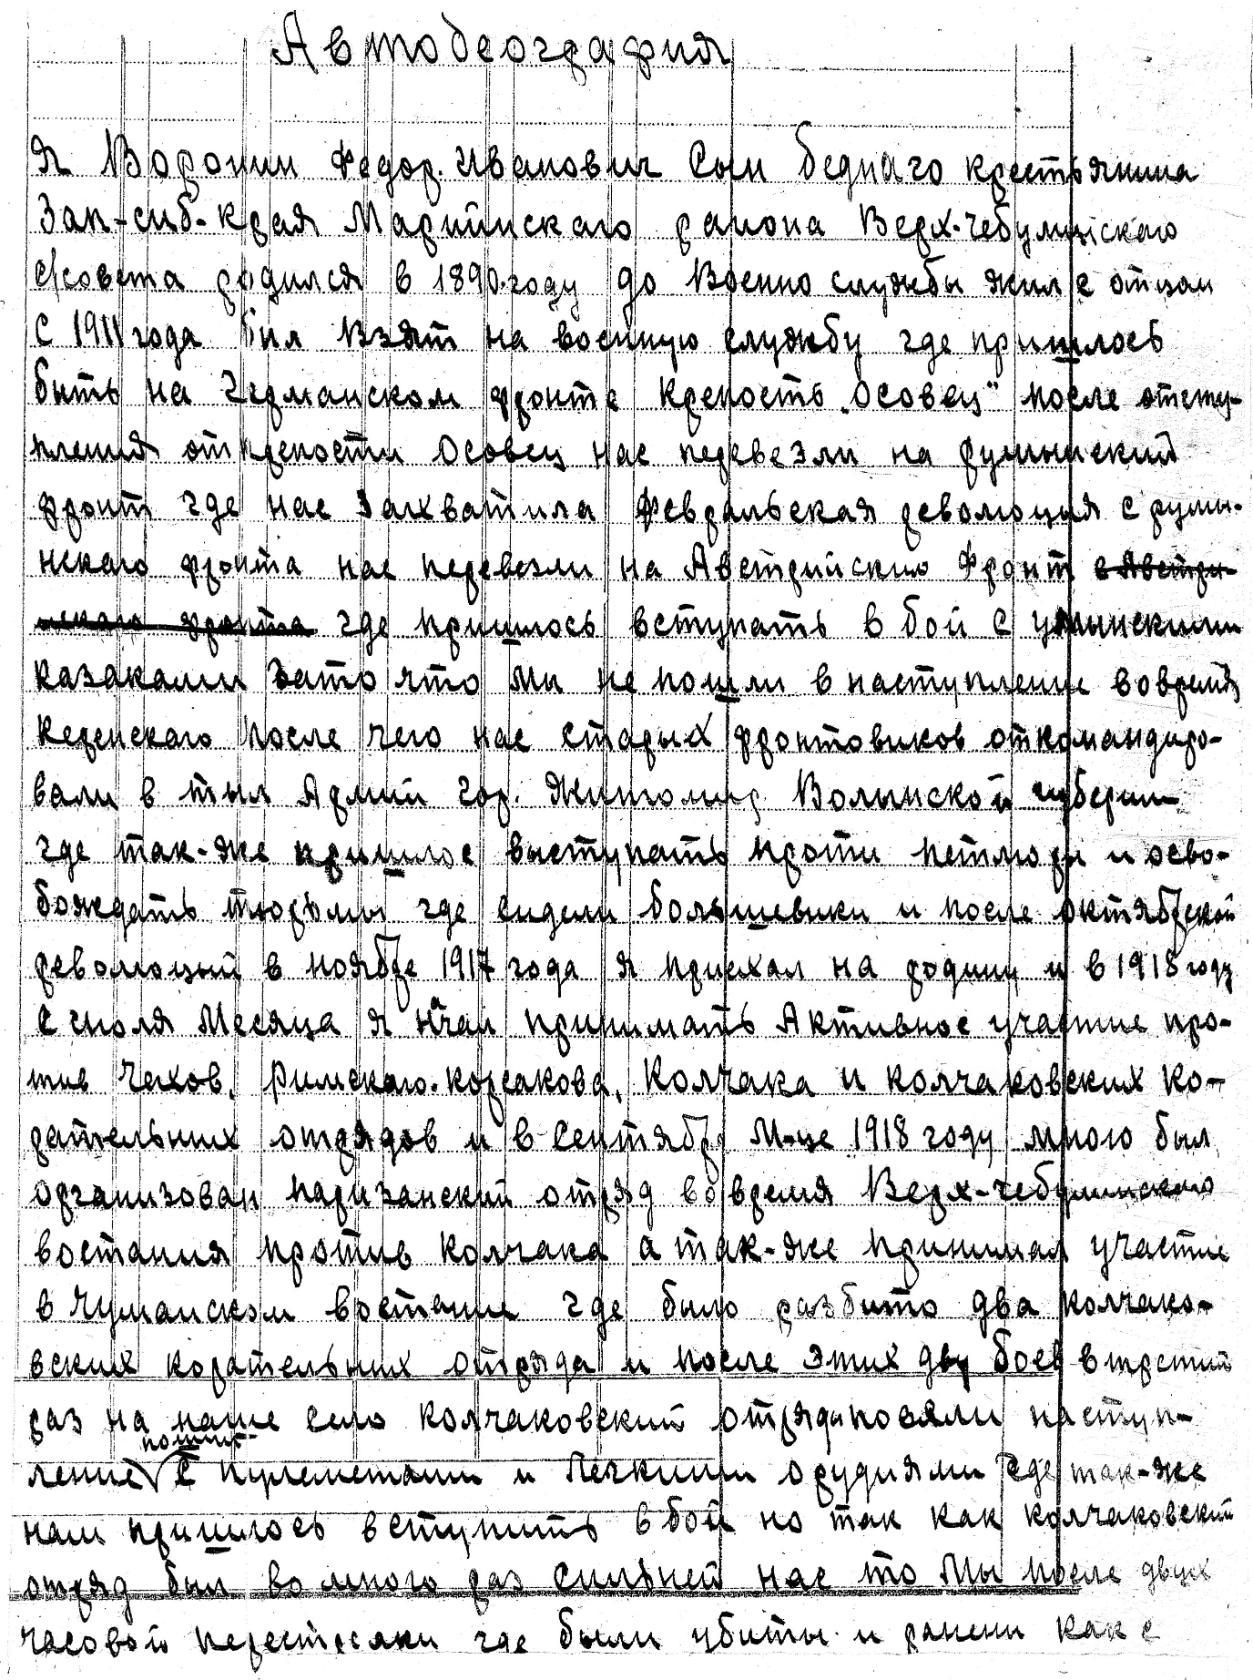 Автобеография
Я Воронин Федор. Иванович Сын беднаго крестьянина
Зап-сиб-края Мариинскаго района Верх-чебулинскаго
с/совета родился в 1890.году до Военно службы жил с отцом
С 1911 года был Взят на военную службу где пришлось
быть на Германском фронте крепость „Осовец" после отсту-
пления от крепости Осовец нас перевезли на румынский
фронт где нас Захватила Февральская революция с румы-
нскаго фронта нас перевезли на Австрийскию Фронт с Австри-
искаго фронта где пришлось вступать в бой с
казаками Зато что мы не пошли в наступление вовремя
Керенскаго После чего нас старых фронтовиков откомандиро-
вали в тыл Армий гор. Житомир Волынской губернии
где так-же пришлос выступать проти петлюры и осво-
бождать тюрьмы где сидели большевики и после октябрской
революций в ноябре 1917 года я приехал на родину и в 1918 году
с июля Месяца я начал принимать Активное участие про-
тив Чехов, Римскаго-Корсакова, Колчака и колчаковских ко-
рательных отрядов и в Сентябре М-це 1918 году мною был
организован паризанский отряд вовремя Верх-чебулинскаго
востания против Колчака а так-же принимал участие
в Чуманском востание где было разбито два колчако-
вских корательных отряда и после этих дву боев в третий
раз на наше село колчаковский отряд повяли наступ-
ление с пулеметами и Легкими орудиями где так-же
нам пришлось вступить в бой но так как колчаковский
отряд был во много раз сильней нас то Мы после двух
часовой перестрелки где были убиты и ранены как с